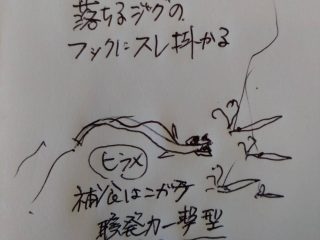 落ちるジグの
フックにスレ掛かる
ヒラメ
補食はこがチ
瞬発力一撃型